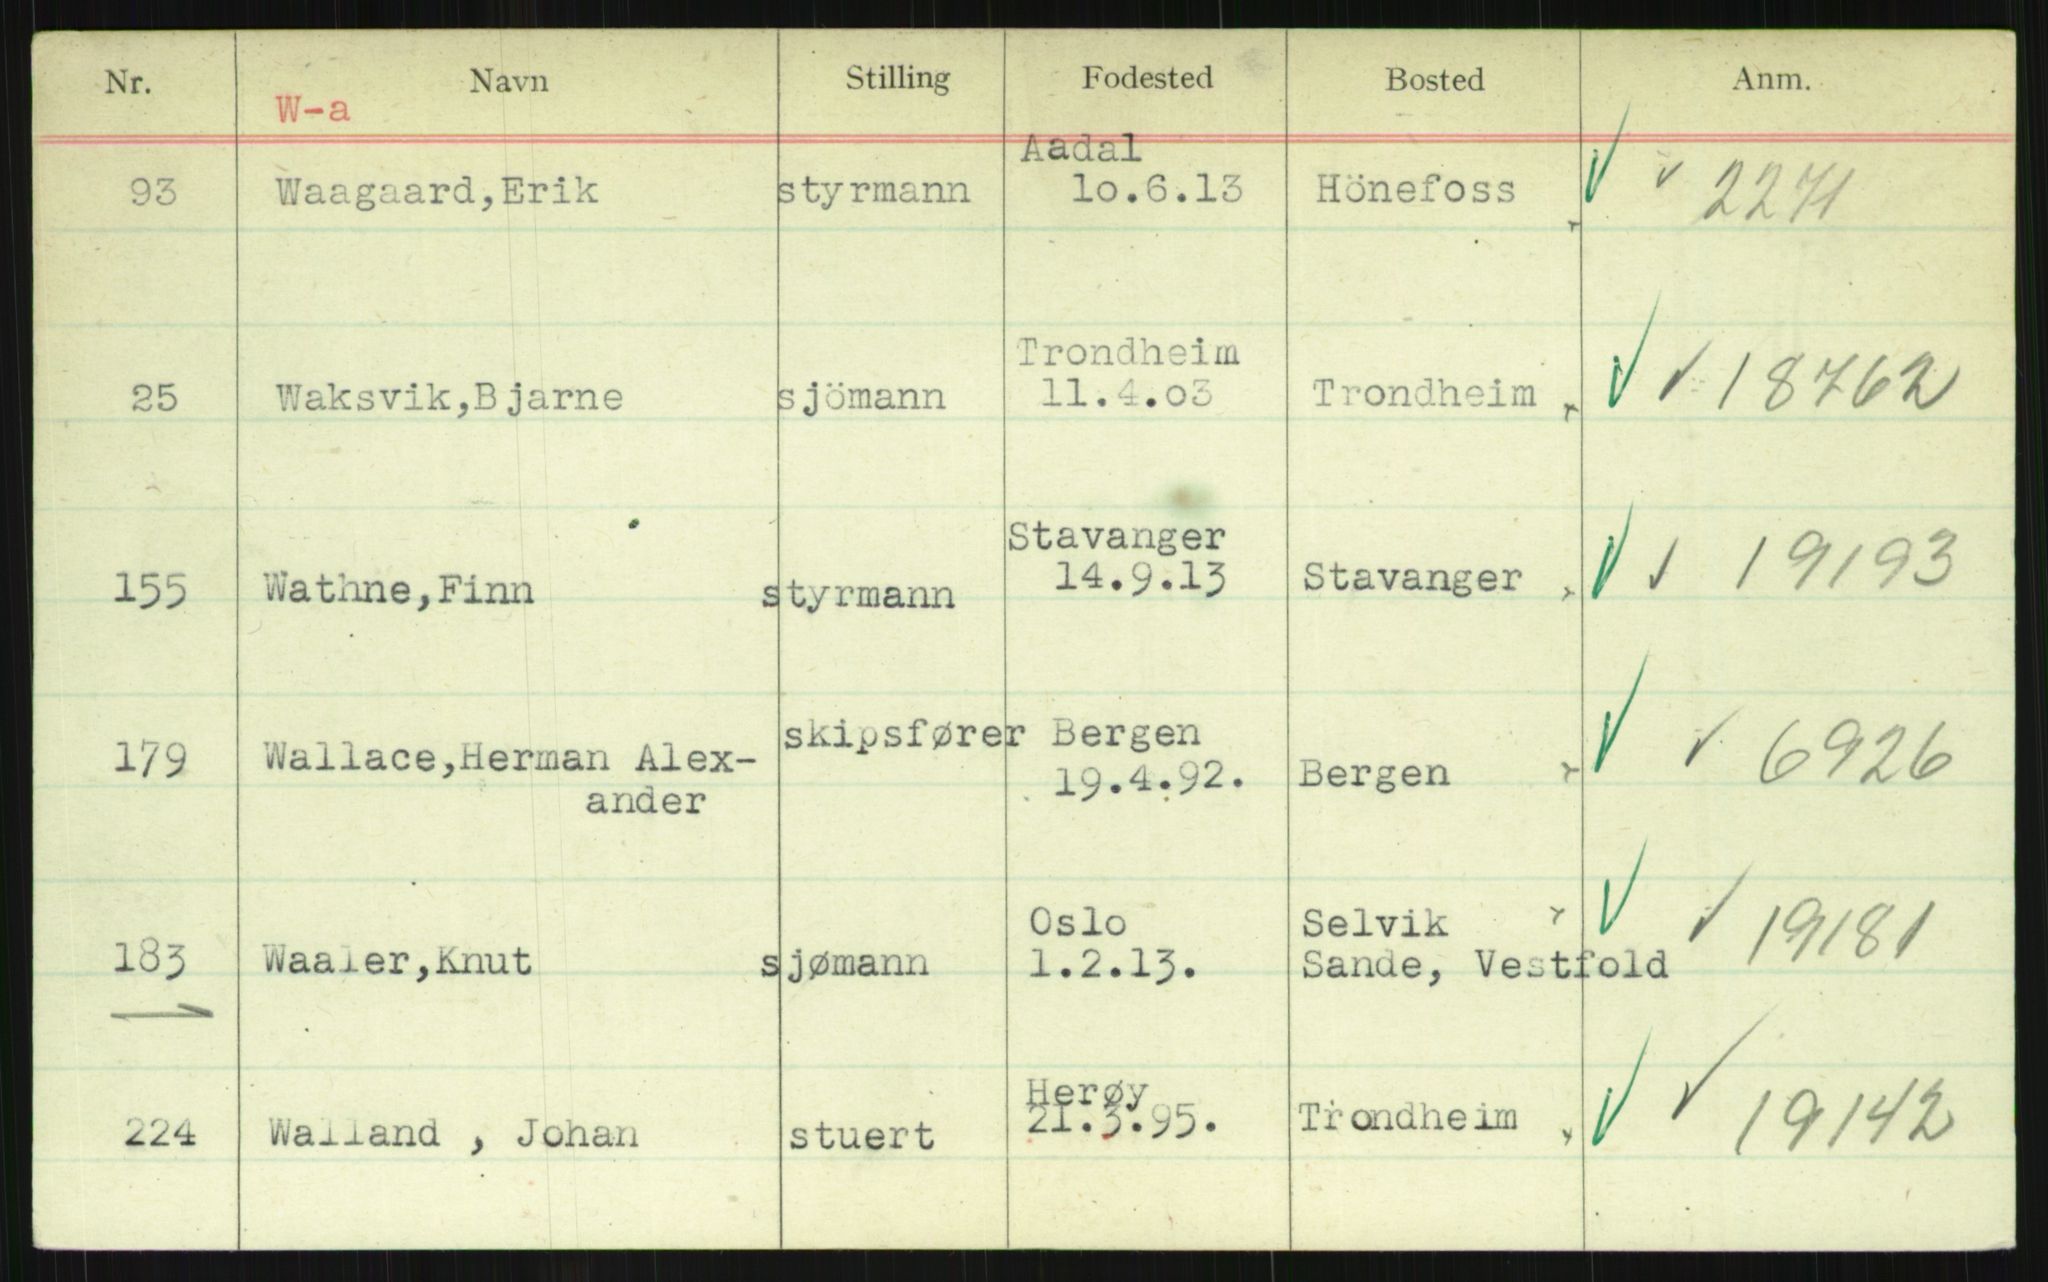 Nr. Navn Stilling Fodested Bosted Anm.
W-a
Aadal
93 Waagaard,Erik styrmann 1o.6.13 Hönefoss ✓ ✓ 2271
Trondheim
25 Waksvik,Bjarne sjömann 11.4.o3 Trondheim ✓ ✓ 18762
Stavanger
155 Wathne,Finn styrmann 14.9.13 Stavanger ✓ ✓ 19193
skipsfører Bergen
179 Wallace,Herman Alex- 19.4.92. Bergen ✓ ✓ 6926
ander
Oslo Selvik ✓ ✓ 19181
183 Waaler,Knut sjømann 1.2.13. Sande, Vestfold
Herøy
224 Walland , Johan stuert 21.3.95. Trondheim ✓ ✓ 19142